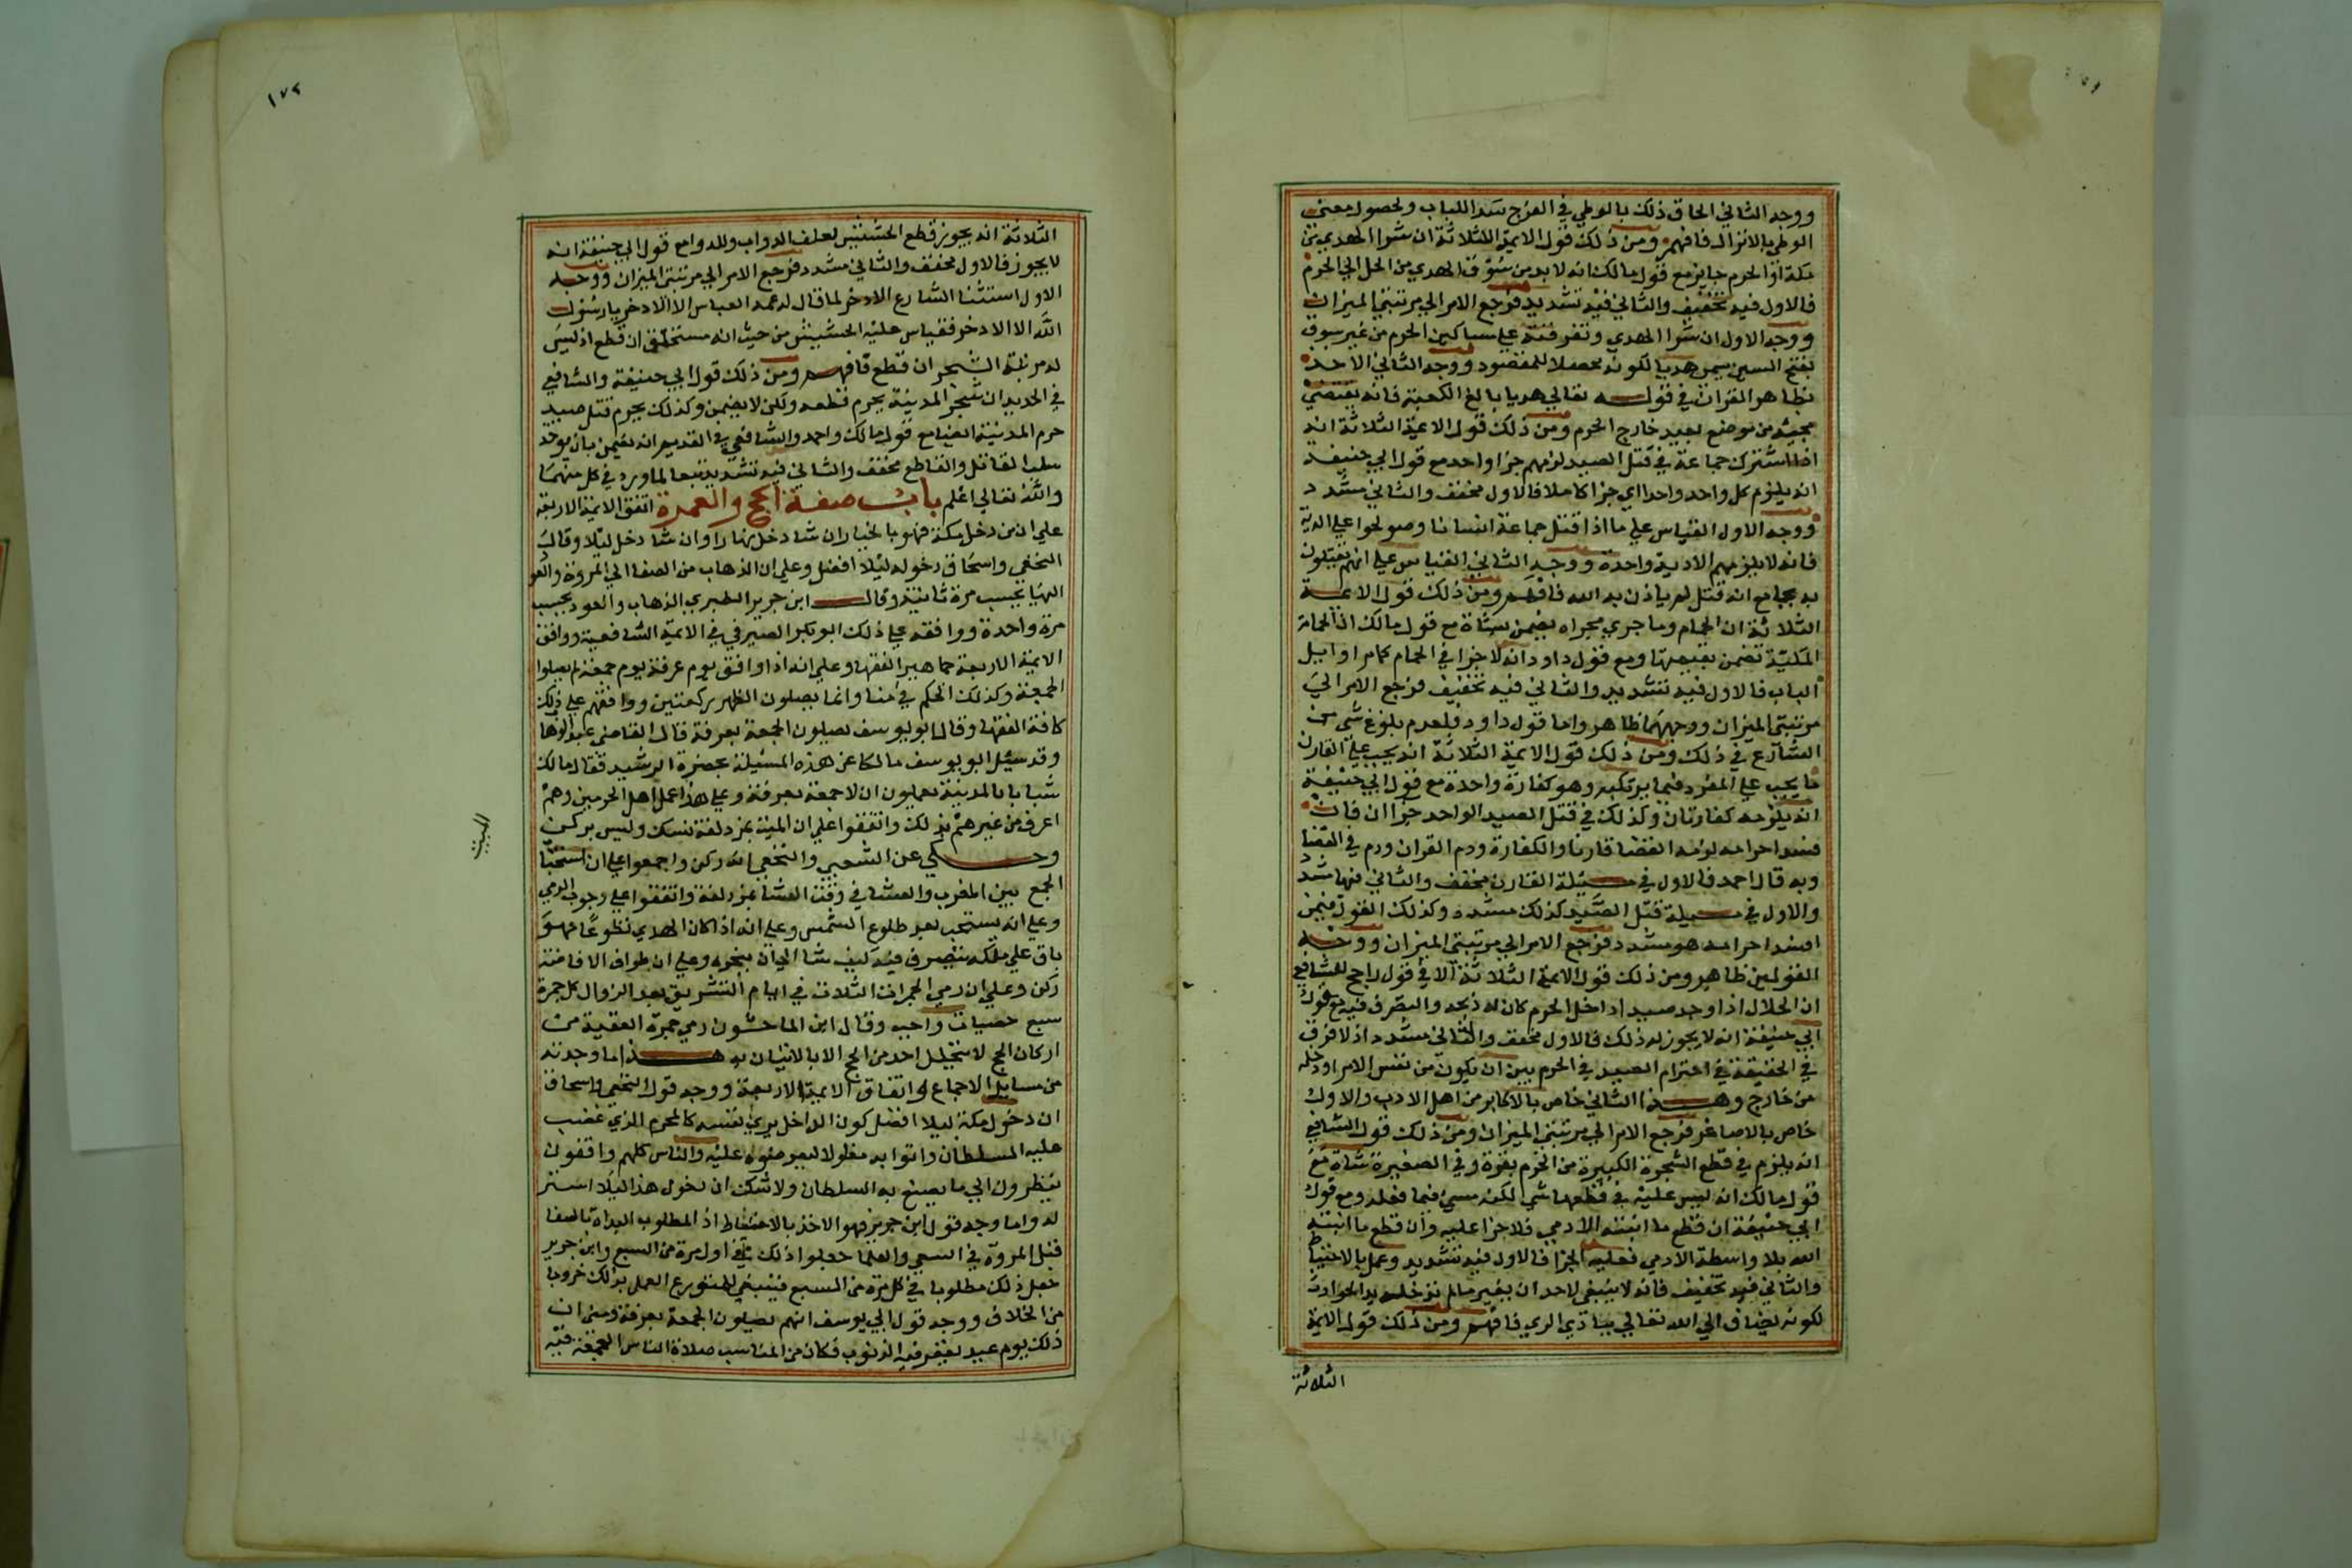 ووجه الثاني الحاق ذلك بالوطي في الفرج سدا للباب ولحصول معنى
الوطي بالانزال فافهم ومن ذلك قول الايمة الثلاثة ان شرا الهدي من
مكة او الحرم جايز مع قول مالك انه لابد من سوق الهدي من الحل الي الحرم
فالاول فيه تخفيف والثاني فيه تشديد فرجع الامر الي مرتبتي الميزان
ووجه الاول ان شرا الهدي وتفرقته علي مساكين الحرم من غير سوق
بفتح السين يسمى هديا لكونه محصلا للمقصود ووجه الثاني الاخذ
بظاهر القران في قوله تعالي هديا بالغ الكعبة فانه يقتضي
مجيئه من موضع بعيد خارج الحرم ومن ذلك قول الايمة الثلاثة انه
اذا اشترك جماعة في قتل الصيد لزمهم جزا واحد مع قول ابي حنيفة
انه يلزم كل واحد واحد اي جزا كاملا فالاول مخفف والثاني مشدد
ووجه الاول القياس علي ما اذا قتل جماعة انسانا وصولحوا علي الدية
فانه لا يلزمهم الا دية واحدة ووجه الثاني القياس علي انهم يقتلون
به بجامع انه قتل لم ياذن به الله فافهم ومن ذلك قول الايمة
الثلاثة ان الحمام وما جري مجراه يضمن بشاة مع قول مالك ان الحمامة
المكية تضمن بقيمتها ومع قول داود انه لا جزا في الحمام كما مر اوايل
الباب فالاول فيه تشديد والثاني فيه تخفيف فرجع الامر الي
مرتبتي الميزان ووجههما ظاهر واما قول داود فلعدم بلوغ شي من
الشارع في ذلك ومن ذلك قول الايمة الثلاثة انه يجب علي القارن
ما يجب علي المفرد فيما يرتكبه وهو كفارة واحدة مع قول ابي حنيفة
انه يلزمه كفارتان وكذلك في قتل الصيد الواحد جزاان فان
فسد احرامه لزمه القضا قارنا والكفارة ودم القران ودم في القضا
وبه قال احمد فالاول في مسئلة القارن مخفف والثاني فيها مشدد
والاول في مسيلة قتل الصيد كذلك مشدد وكذلك القول فيمن
افسد احرامه هو مشدد فرجع الامر الي مرتبتي الميزان ووجه
القولين ظاهر ومن ذلك قول الايمة الثلاثة الا في قول راجح للشافعي
ان الحلال اذا وجد صيدا داخل الحرم كان له ذبحه والتصرف فيه مع قول
ابي حنيفة انه لا يجوز له ذلك فالاول مخفف والثاني مشدد اذ لا فرق
في الحقيقة في احترام الصيد في الحرم بين ان يكون من نفس الامر او دخله
من خارج وهذا الثاني خاص بالاكابر من اهل الادب والاول
خاص بالاصاغر فرجع الامر الي مرتبتي الميزان ومن ذلك قول الشافعي
انه يلزم في قطع الشجرة الكبيرة من الحرم بقرة وفي الصغيرة شاة مع
قول مالك انه ليس عليه في قطعها شي لكنه مسيء فيما فعله ومع قول
ابي حنيفة ان قطع ما انبته الادمي فلا جزا عليه وان قطع ما انبته
الله بلا واسطة الادمي فعليه الجزا فالاول فيه تشديد وعمل بالاحتياط
والثاني فيه تخفيف فانه لا ينبغي لاحد ان يغير ما لم تدخله يد الحوادث
لكونه يضاف الي الله تعالي ببادي الري فافهم ومن ذلك قول الايمة
الثلاثة
١٧٢
الثلاثة انه يجوز قطع الحشيش لعلف الدواب وللدوا مع قول ابي حنيفة انه
لا يجوز فالاول مخفف والثاني مشدد فرجع الامر الي مرتبتي الميزان ووجه
الاول استثنا الشارع الاذخر لما قال له عمه العباس الا الاذخر يا رسول
الله الا الاذخر فقياس عليه الحشيش من حيث انه مستخلف ان قطع اذ ليس
له مرتبة الشجر ان قطع فافهم ومن ذلك قول ابي حنيفة والشافعي
في الجديد ان شجر المدينة يحرم قطعه ولكن لا يضمن وكذلك يحرم قتل صيد
حرم المدينة ايضا مع قول مالك واحمد والشافعي في القديم انه يضمن بان يوخذ
سلب القاتل والقاطع مخفف والثاني فيه تشديد تبعا لما ورد في كل منهما
والله تعالي اعلم باب صفة الحج والعمرة اتفق الايمة الاربعة
علي ان من دخل مكة فهو بالخيار ان شا دخل نهارا وان شا دخل ليلا وقال
النخعي واسحاق دخوله ليلا افضل وعلي ان الذهاب من الصفا الي المروة والعود
اليها يحسب مرة ثانية وقال ابن جرير الطبري الذهاب والعود يحسب
مرة واحدة ووافقه علي ذلك ابو بكر الصيرفي في الايمة الشافعية ووافق
الايمة الاربعة جماهير الفقها وعلي انه اذا وافق يوم عرفة يوم جمعة لم يصلوا
الجمعة وكذلك الحكم في منا وانما يصلون الظهر ركعتين ووافقهم علي ذلك
كافة الفقها وقال ابو يوسف يصلون الجمعة بعرفة قال القاضي عبد الوهاب
وقد سئل ابو يوسف مالكا عن هذه المسئلة بحضرة الرشيد فقال مالك
شبابا بالمدينة يعلمون ان لا جمعة بعرفة وعلي هذا عمل اهل الحرمين وهم
اعرف من غيرهم بذلك واتفقوا علي ان المبيت بمزدلفة نسك وليس بركن
وحكي عن الشعبي والنخعي انه ركن واجمعوا علي ان استحباب
الجمع بين المغرب والعشا في وقت العشا بمزدلفة واتفقوا علي وجوب الرمي
وعلي انه يستحب بعد طلوع الشمس وعلي انه اذا كان الهدي تطوعا فهو
باق علي ملكه يتصرف فيه كيف شا الي ان ينحره وعلي ان طواف الافاضة
ركن وعلي ان رمي الجمرات الثلاث في ايام التشريق بعد الزوال كل جمرة
سبع حصيات واجب وقال ابن الماجشون رمي جمرة العقبة من
اركان الحج لا يتحلل احد من الحج الا بالاتيان به هذا ما وجدته
من مسايل الاجماع واتفاق الايمة الاربعة ووجه قول النخعي واسحاق
ان دخول مكة ليلا افضل كون الداخل يري نفسه كالمجرم الذي غضب
عليه السلطان واتوا به مغلولا ليعرضوه عليه والناس كلهم واقفون
ينظرون الي ما يصنع به السلطان ولا شك ان دخول هذا ليلا استر
له واما وجه قول ابن جرير فهو الاخذ بالاحتياط اذ المطلوب البداة بالصفا
قبل المروة في السعي والعلما جعلوا ذلك في اول مرة من السبع وابن جرير
جعل ذلك مطلوبا في كل مرة من السبع فينبغي للمتورع العمل بذلك خروجا
من الخلاف ووجه قول ابي يوسف انهم يصلون الجمعة بعرفة ومنى ان
ذلك يوم عيد يغفر فيه الذنوب فكان من المناسب صلاة الناس الجمعة فيه
المبيت